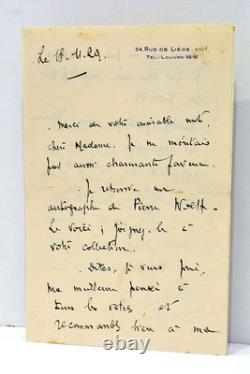 54, RUE DE LIÈGE. VIIIᵉ
TEL: LOUVRE 45-16
Le 18. 11. 29.
. Merci de votre aimable mot,
chère Madame. Je ne méritais
pas aussi charmante faveur.
. Je retrouve un
autographe de Pierre Wolff.
Le voici ; joignez-le à
votre collection.
. Dites, je vous prie,
ma meilleure pensée à
tous les vôtres, et
recommandez bien à ma